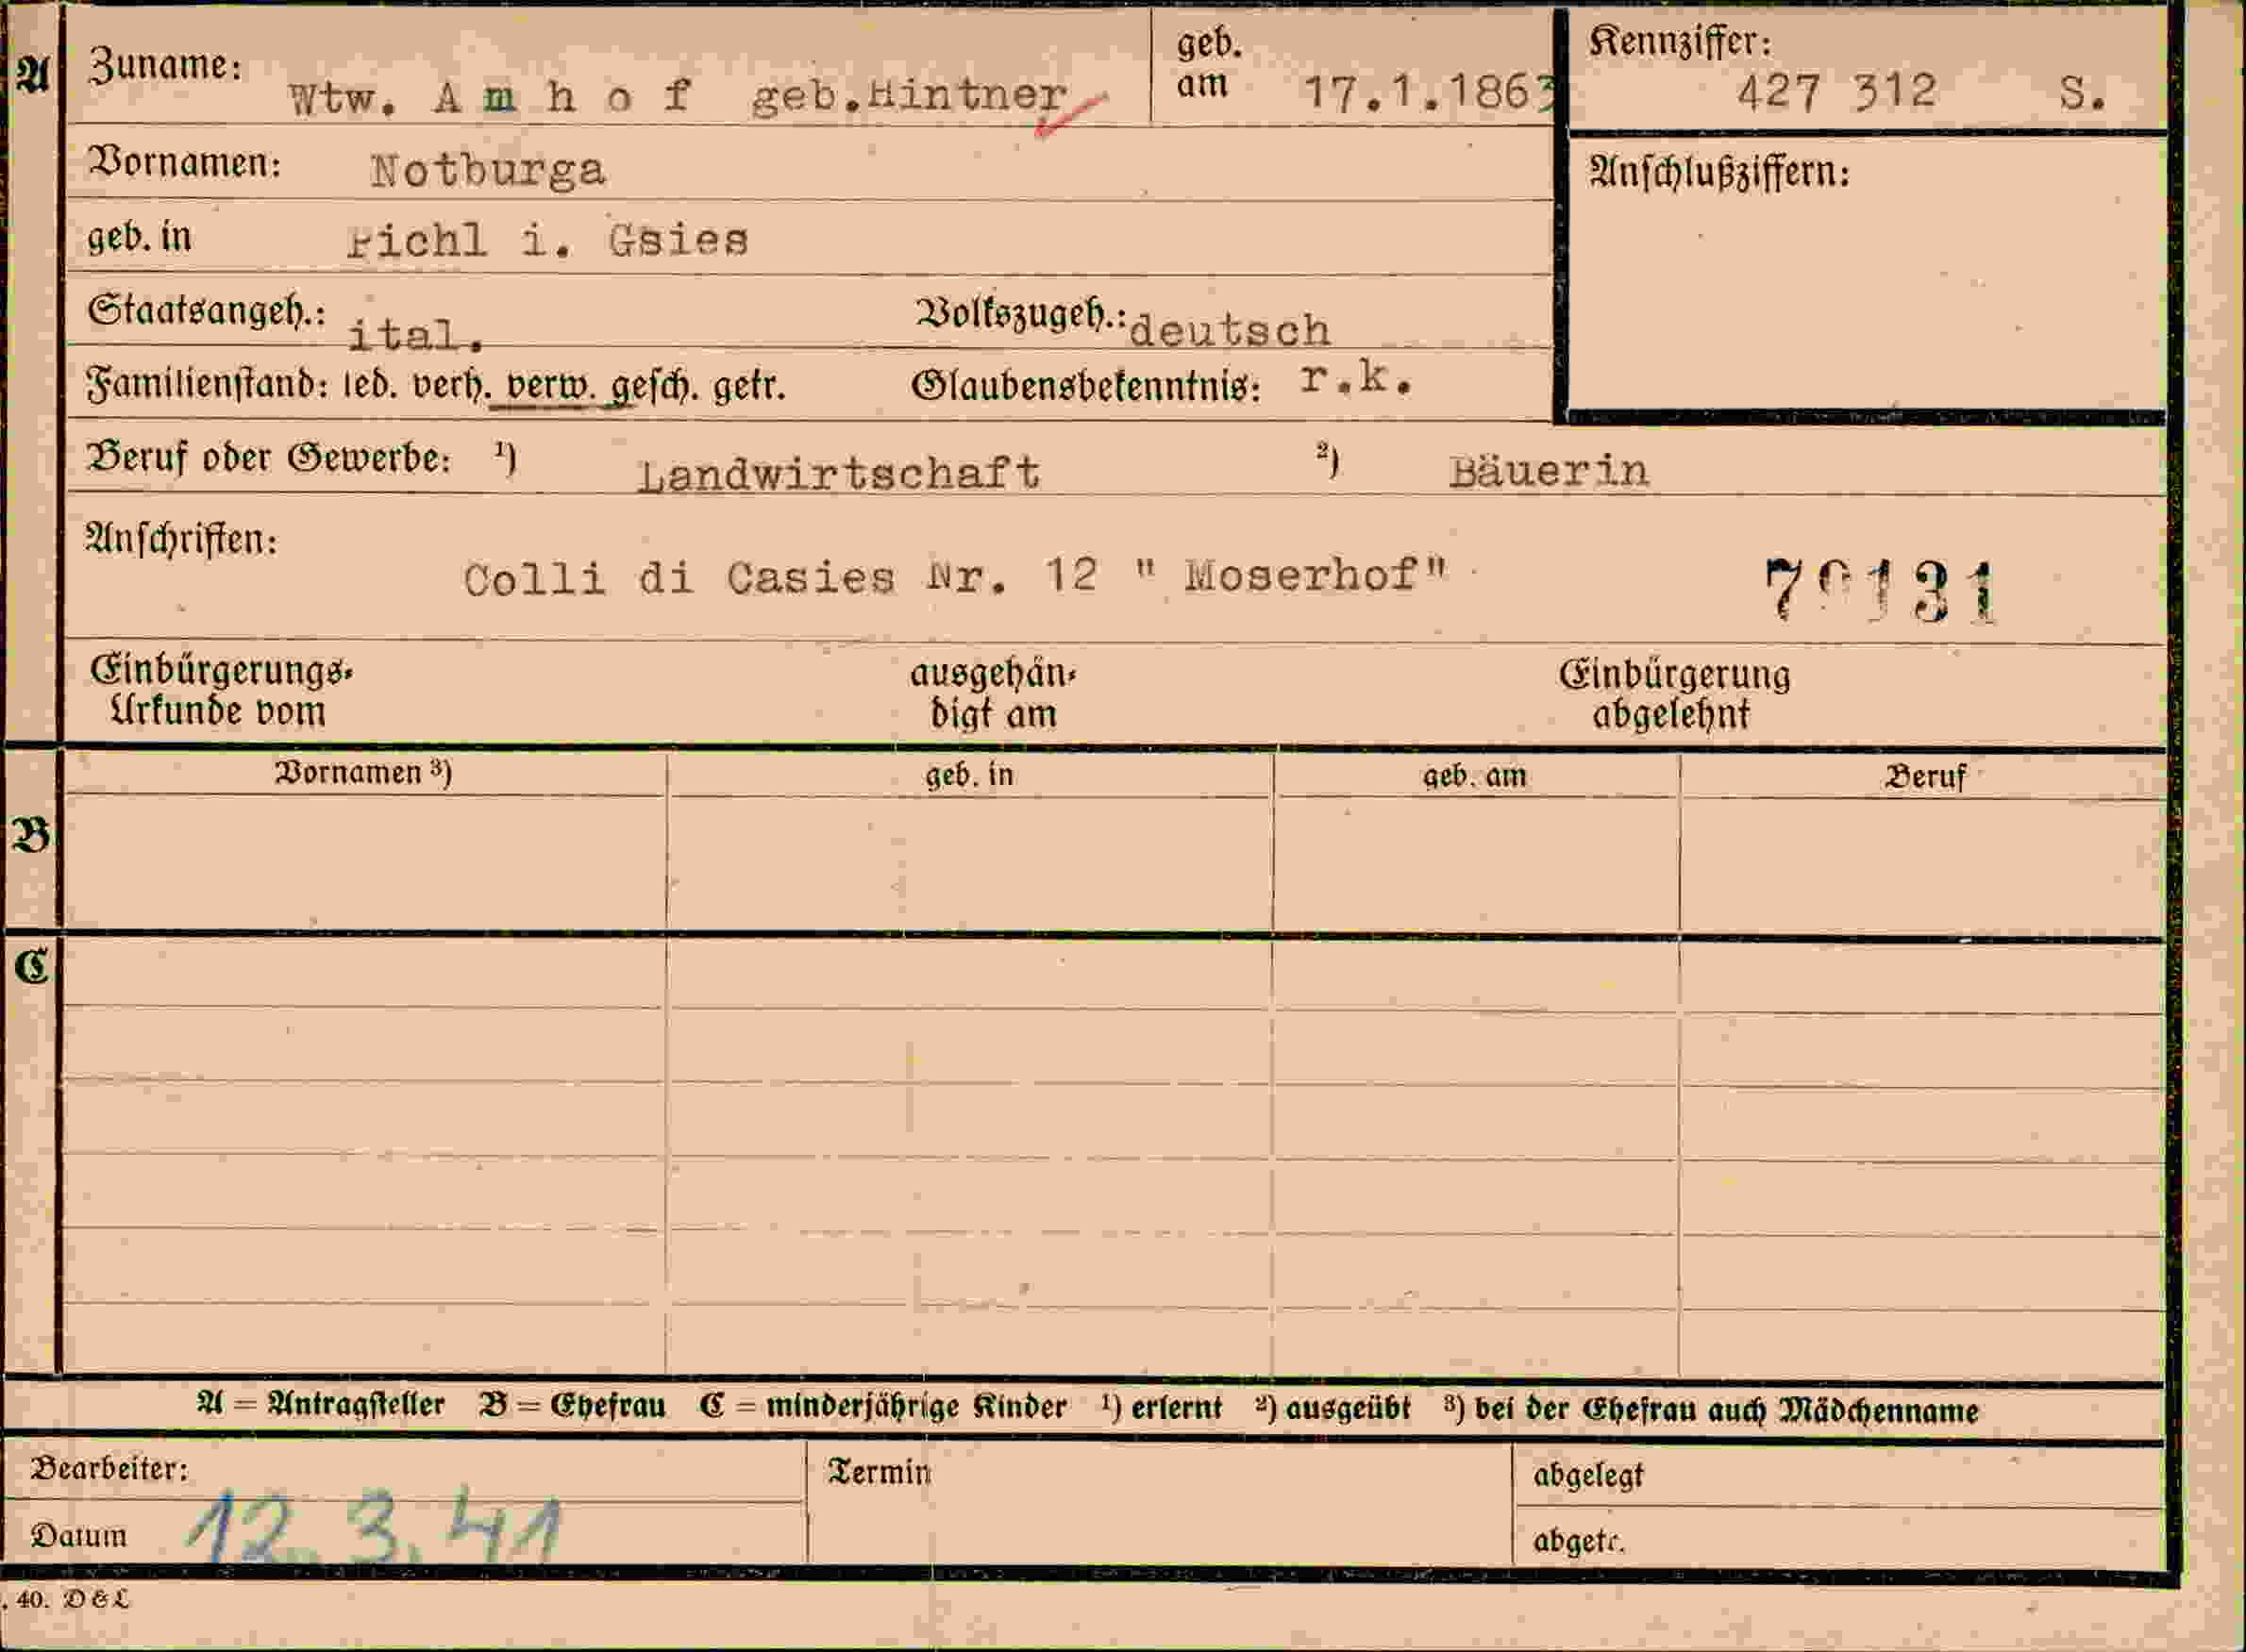 A Zuname: Wtw. A m h o f geb.Hintner geb. am 17.1.1863 Kennziffer: 427 312 S.
Vornamen: Notburga Anschlußziffern:
geb. in Pichl i. Gsies
Staatsangeh.: ital. Volkszugeh.: deutsch
Familienstand: led. verh. verw. gesch. getr. Glaubensbekenntnis: r.k.
Beruf oder Gewerbe: ¹) Landwirtschaft ²) Bäuerin
Anschriften: Colli di Casies Nr. 12 " Moserhof"
Einbürgerungs- ausgehän- Einbürgerung
Urkunde vom digt am abgelehnt
Vornamen ³) geb. in geb. am Beruf
B
C
A = Antragsteller B = Ehefrau C = minderjährige Kinder ¹) erlernt ²) ausgeübt ³) bei der Ehefrau auch Mädchenname
Bearbeiter: Termin abgelegt
Datum 12.3.41 abgetr.
. 40. D & L